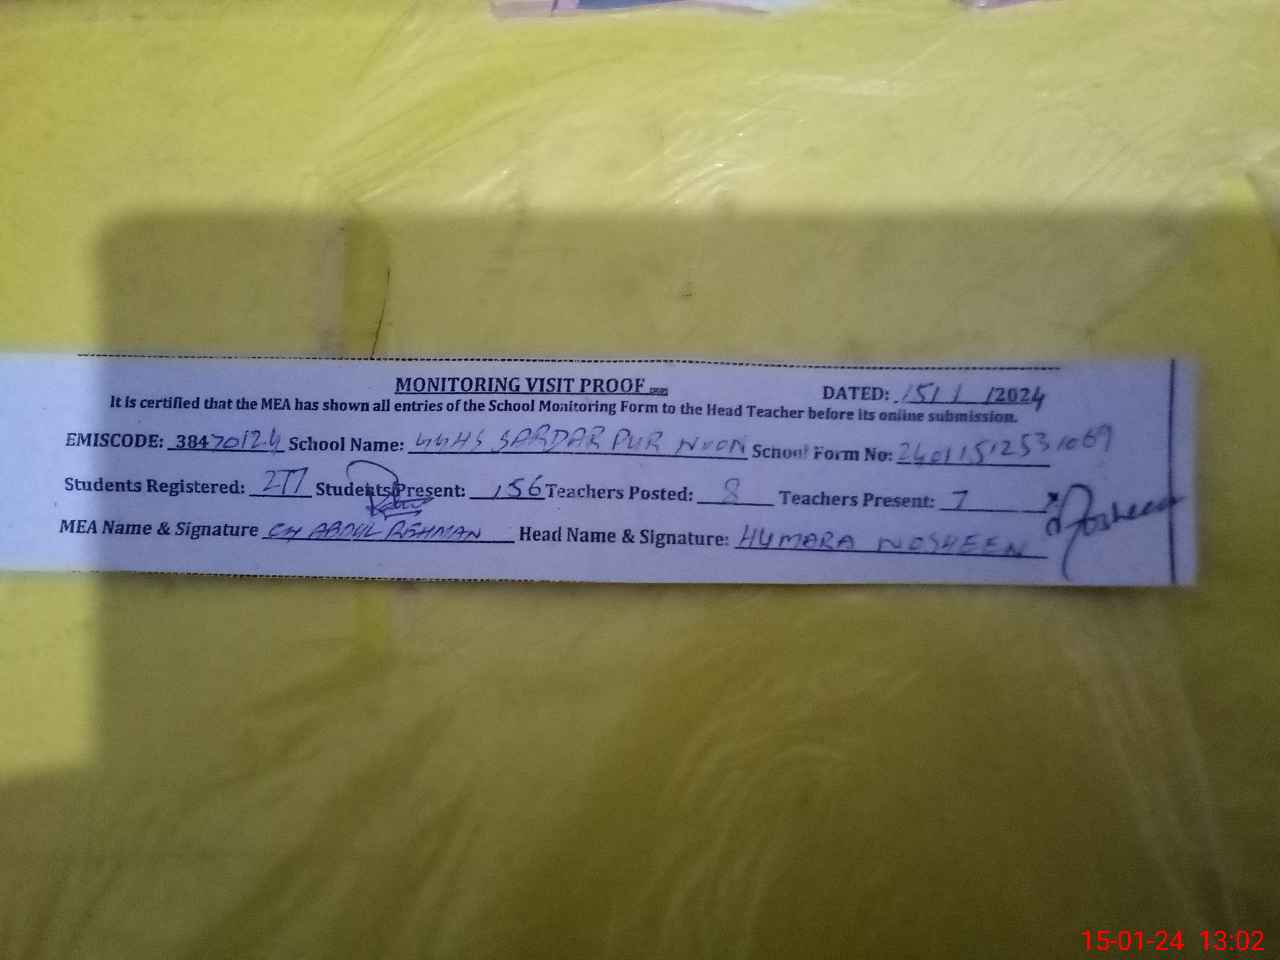 MONITORING VISIT PROOF
DATED: 15/1/2024
It is certified that the MEA has shown all entries of the School Monitoring Form to the Head Teacher before its online submission.
EMISCODE: 38470124 School Name: GGHS SARDAR PUR NOON School Form No: 24011512531069
Students Registered: 277 Students Present: 156 Teachers Posted: 8 Teachers Present: 7
MEA Name & Signature CH ABDUL REHMAN Head Name & Signature: HUMARA NOSHEEN Nosheen
15-01-24 13:02